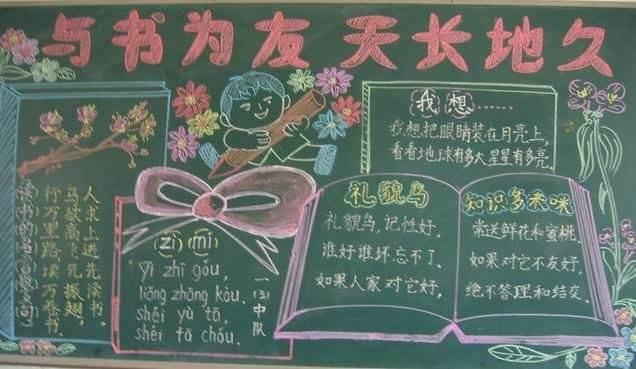 与书为友 天长地久
人求上进先读书,
鸟欲高飞先振翅,
行万里路读万卷书.
读书的名言警句
(zì) (mí)
yì zhī gǒu,
liǎng zhāng kǒu.
shéi yù tā,
shéi fā chóu.
一(3)中队
我想……
我想把眼睛装在月亮上,
看看地球有多大星星有多亮.
礼貌鸟
礼貌鸟,记性好,
谁好谁坏忘不了.
如果人家对它好,
知识多来咪
常送鲜花和蜜桃.
如果对它不友好,
绝不答理和结交.